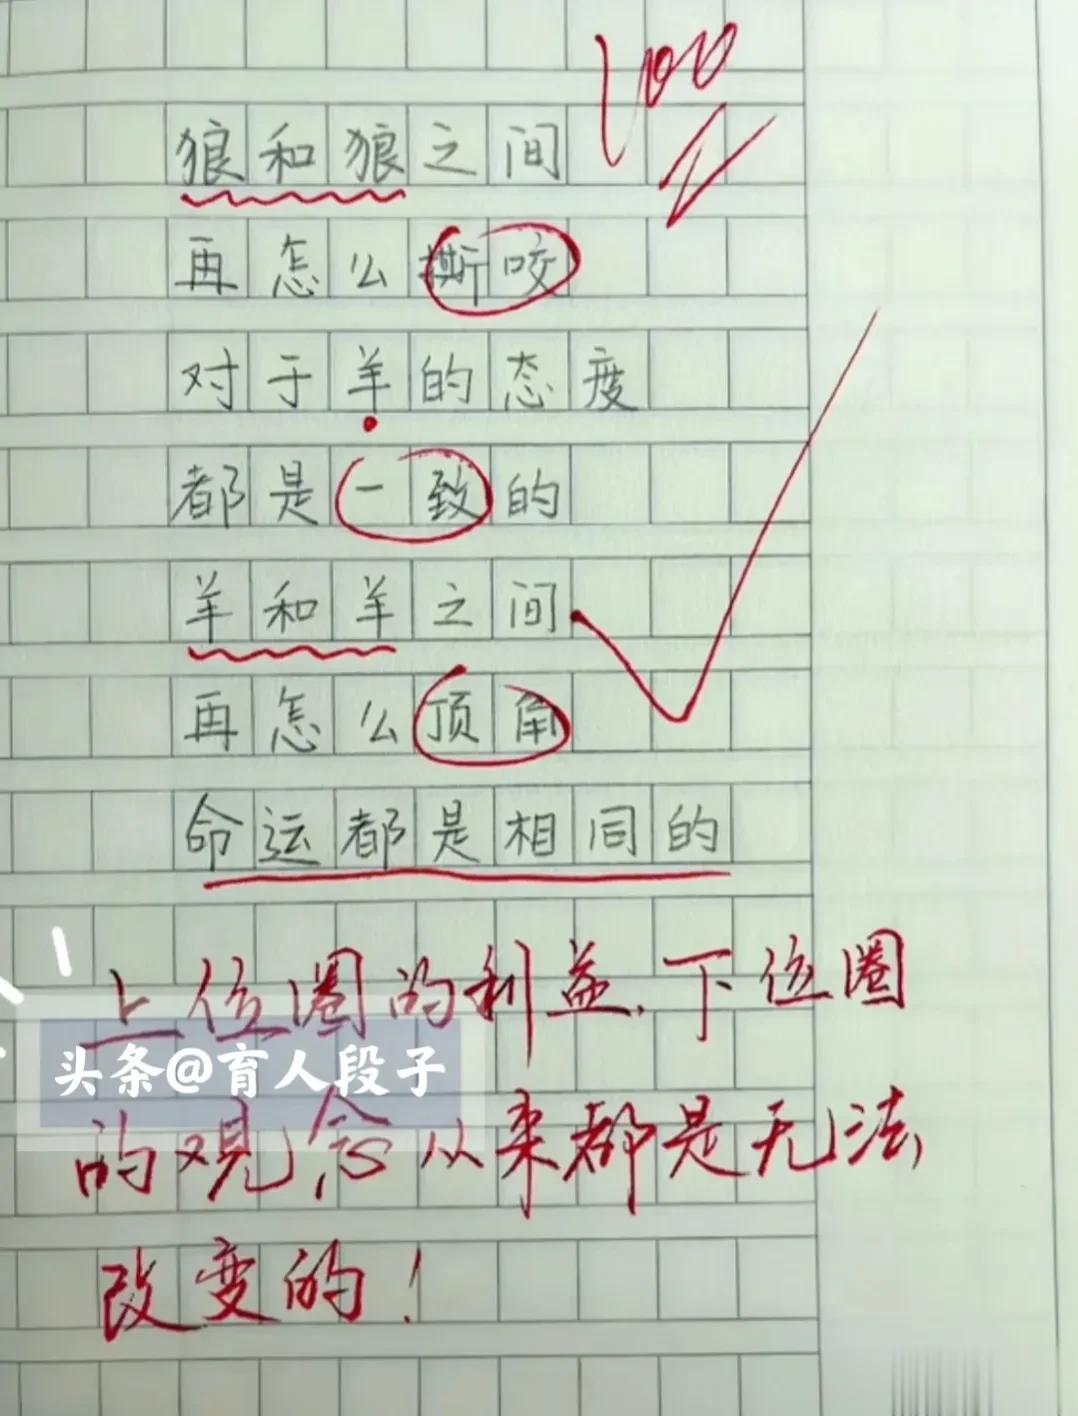 100
狼和狼之间
再怎么撕咬
对于羊的态度
都是一致的
羊和羊之间
再怎么顶角
命运都是相同的
上位圈的利益、下位圈
头条@育人段子
的观念从来都是无法
改变的！